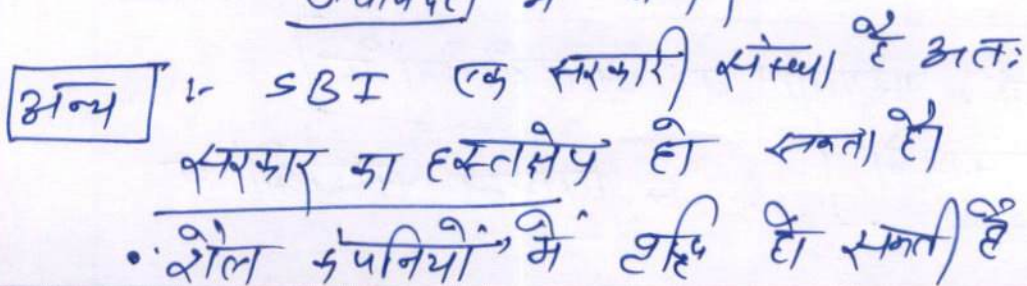 अन्य :- SBI एक सरकारी संस्था है अतः
सरकार का हस्तक्षेप हो सकता है।
• शैल कंपनियों में वृद्धि हो सकती है